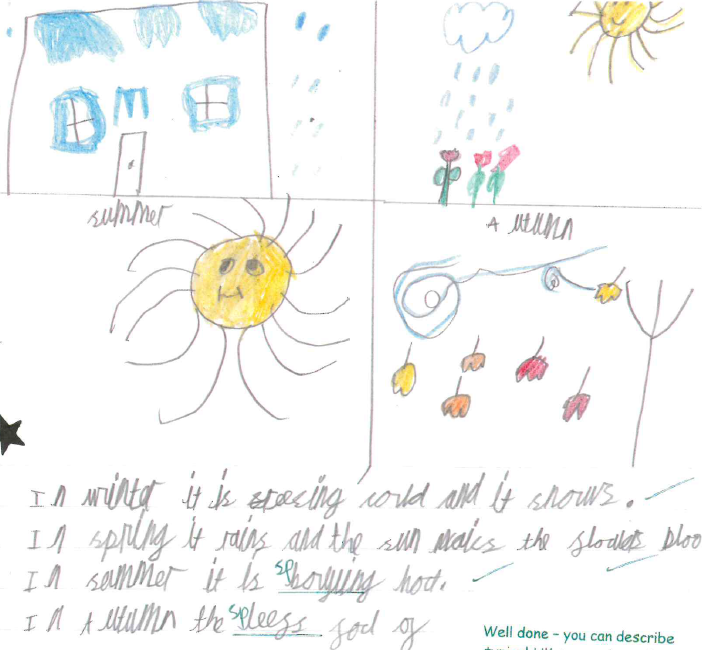 summer
Autumn
In wintar it is freesing corld and it snows.
In spring it rains and the sun makes the flowers bloo
In summer it is sp boryling hot.
In Autumn the sp leegs fod of
Well done - you can describe